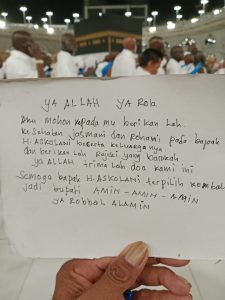 YA ALLAH YA Rob
Aku mohon kepada mu berikan Lah
kesehatan jasmani dan Rohani pada bapak
H. ASKOLANI beserta keluarganya
dan berikan Lah Rejeki yang barokah
ya ALLAH trima Lah doa kami ini
Semoga bapak H. ASKOLANI terpilih kembali
jadi bupati AMIN - AMIN - AMIN
YA ROBBAL ALAMIN